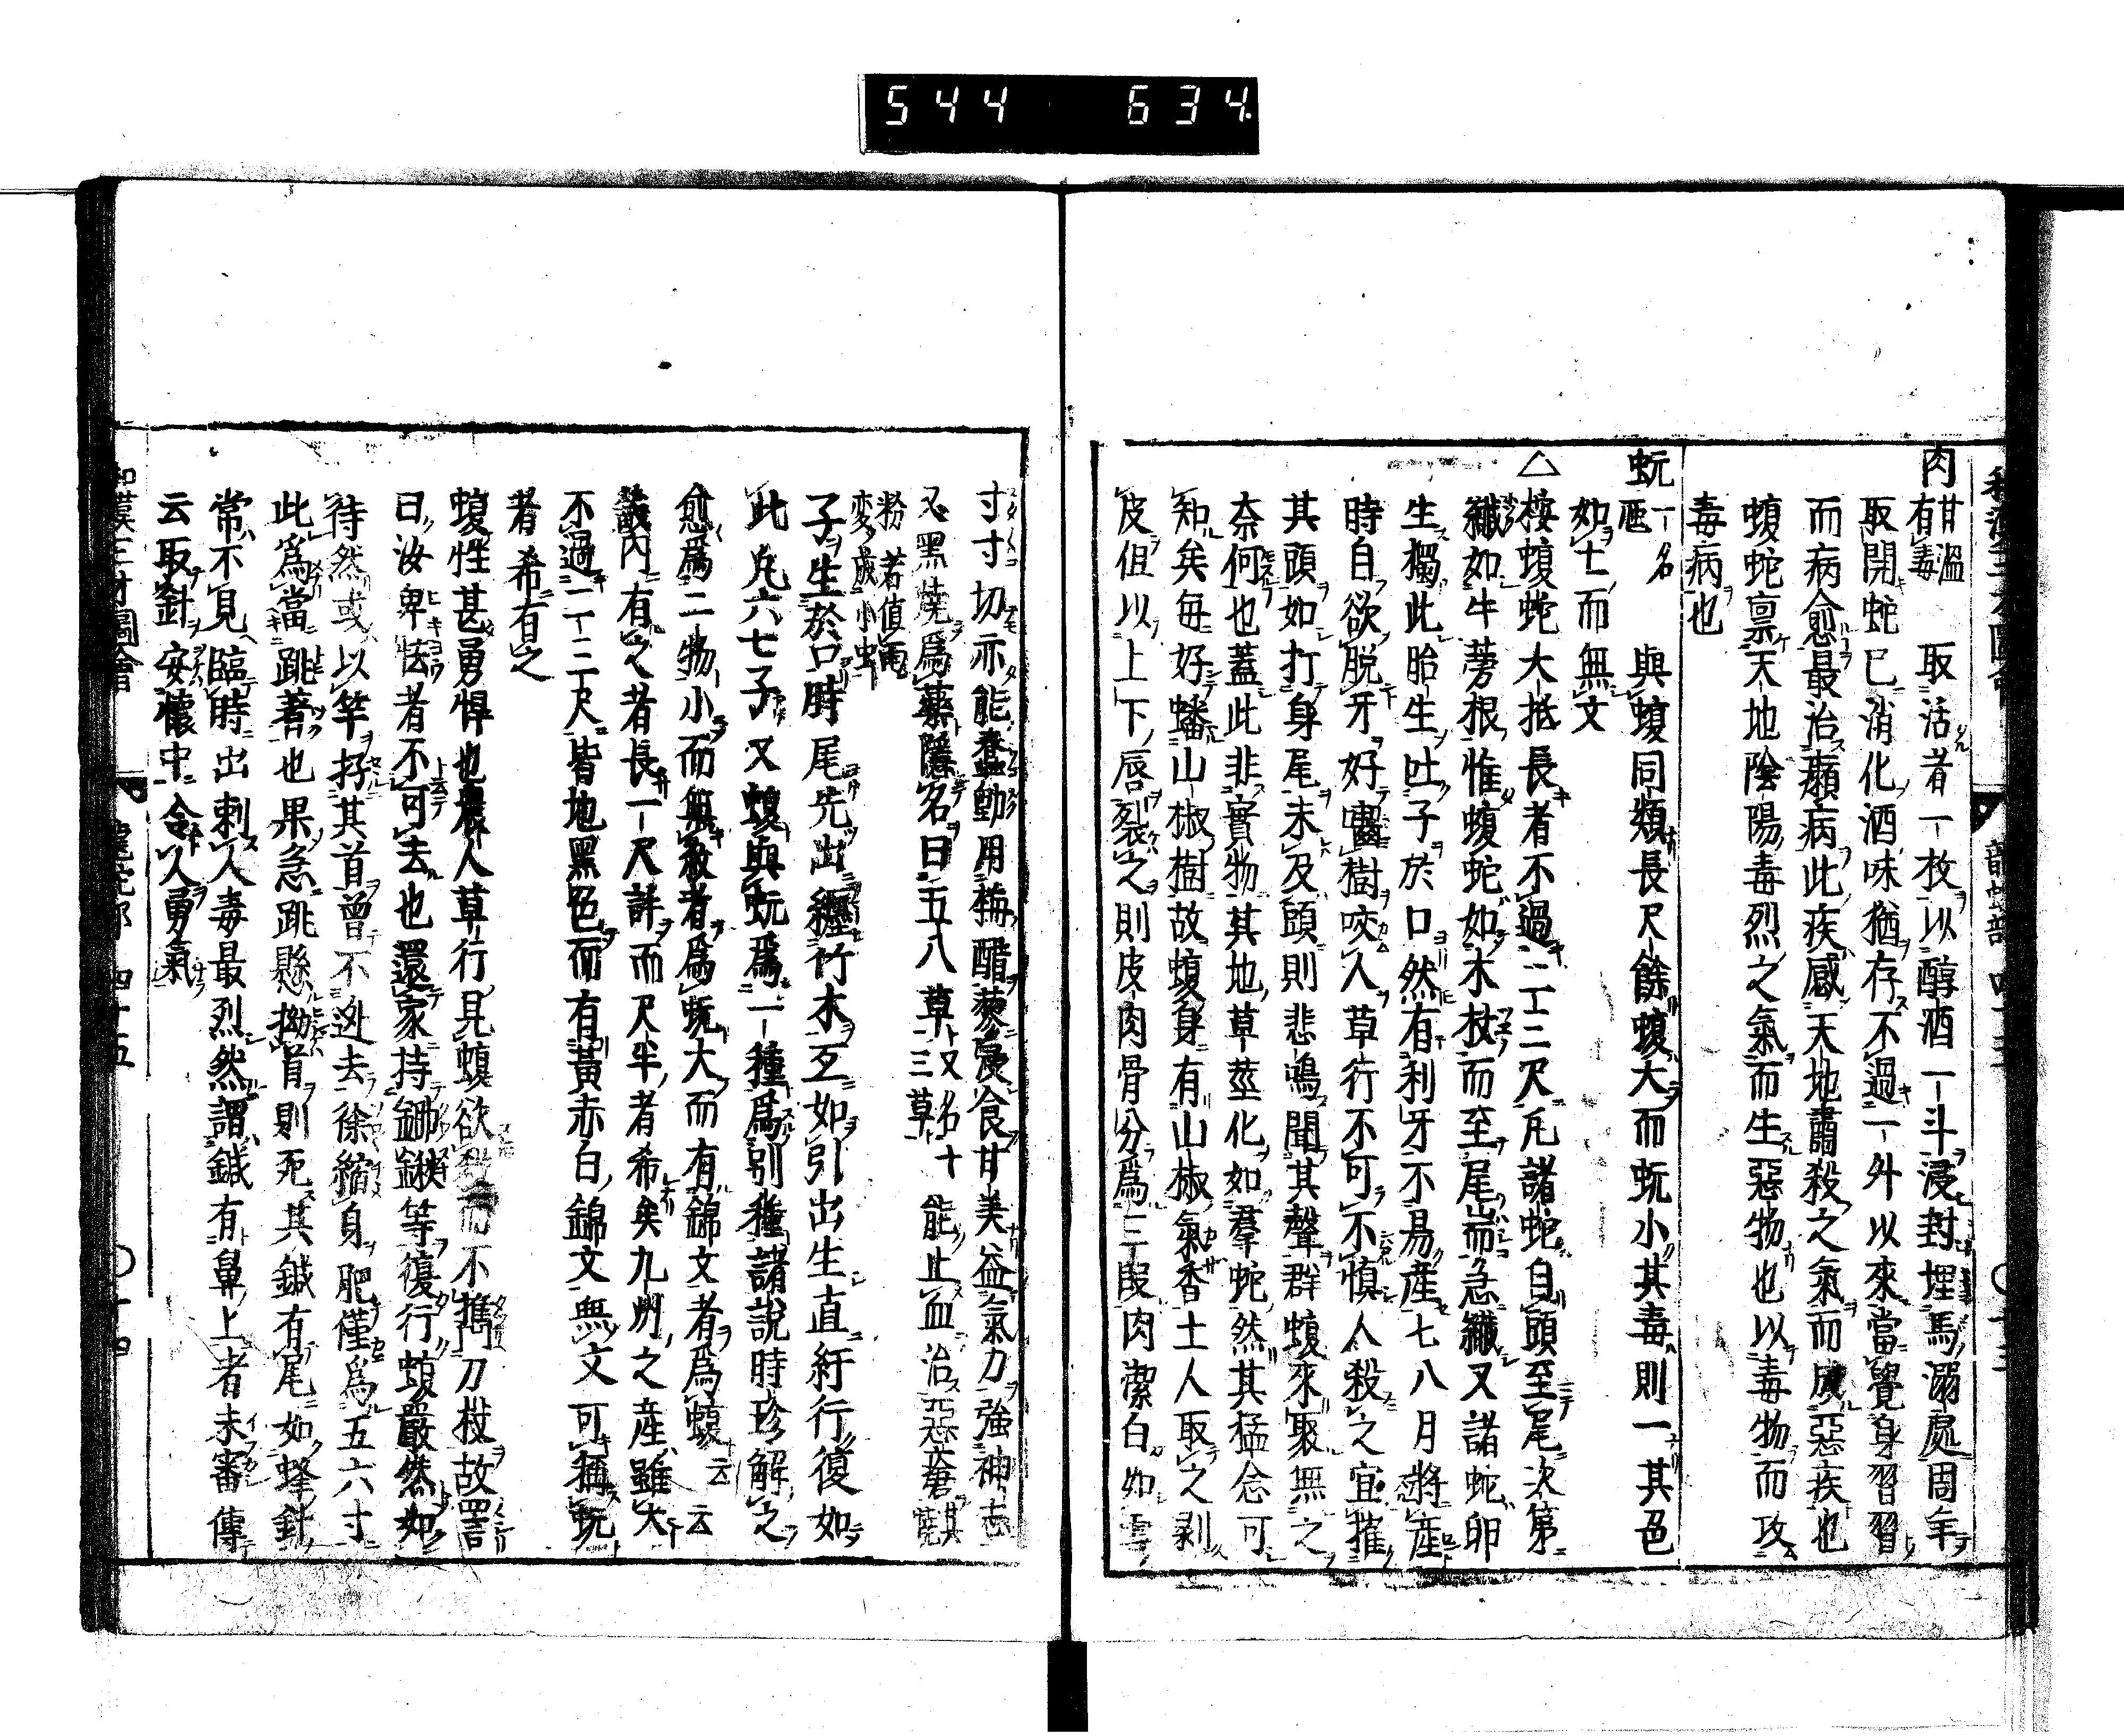 544 634
肉 甘溫有毒 取活者一枚以醇酒一斗浸封埋馬溺處周年
取開蛇已消化酒味猶存不過一外以來當覺身習習
而病愈最治癩病此疾感天地肅殺之氣而成惡疾也
蝮蛇禀天地陰陽毒烈之氣而生惡物也以毒物而攻
毒病也
蚖 一名虺 與蝮同類長尺餘蝮大而蚖小其毒則一其色
如土而無文
△按蝮蛇大抵長者不過一二尺凡諸蛇自頭至尾次第
纎如牛蒡根惟蝮蛇如木杖而至尾耑急纎又諸蛇卵
生獨此胎生吐子於口然有利牙不易産七八月將産
時自欲脱牙好囓樹咬人草行不可不慎人殺之宜摧
其頭如打身尾未及頭則悲鳴聞其聲群蝮來聚無之
奈何也蓋此非實物其地草莖化如羣蛇然其猛忿可
知矣毎好蟠山椒樹故蝮身有山椒氣香土人取之剥
皮但以上下唇裂之則皮肉骨分爲三段肉潔白如雪
寸寸切亦能蠢動用梅醋蓼浸食甘美益氣力強神志
又黑燒爲藥隱名曰五八草又名十三草能止血治惡瘡其燒
粉若値雨變成小蚰
子生於口時尾先出纒竹木互如引出生直紆行復如
此凡六七子又蝮與蚖爲一種爲別種諸説時珍解之
愈爲二物小而無教者爲蚖大而有錦文者爲蝮云云
畿内有之者長一尺許而尺半者希矣九州之産雖大
不過一二尺皆地黑色而有黃赤白錦文無文可稱蚖
者希有之
蝮性甚勇悍也農人草行見蝮欲殺而不攜刀杖故詈
曰汝卑怯者不可去也還家持鋤鍬等復行蝮嚴然如
待然或以竿捋其首曾不迯去徐縮身肥僅爲五六寸
此爲當跳著也果急跳懸拗首則死其鍼有尾如蜂針
常不見臨時出刺人毒最烈然謂鍼有鼻上者未審傳
云取針安懷中令人勇氣